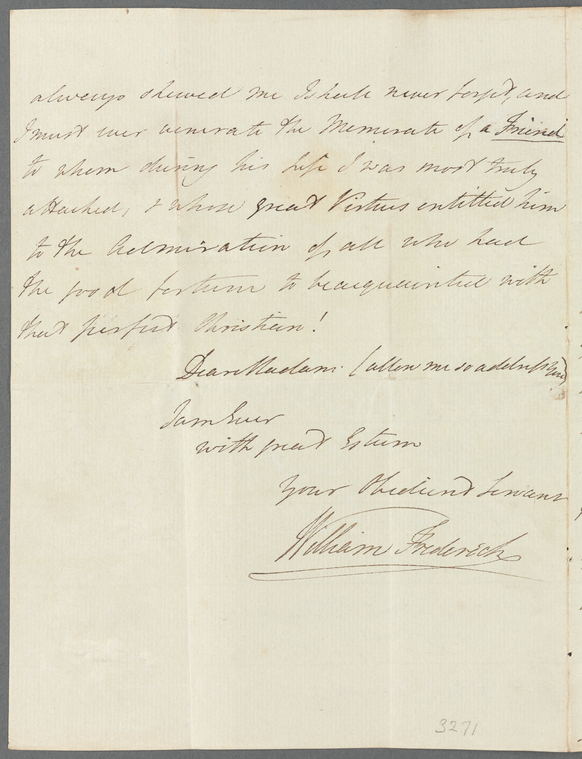 always shewed me I shall never forget, and
I must ever venerate the Memorate of a Friend
to whom during his life I was most truly
attached, & whose great Virtues entitled him
to the Admiration of all who had
the good fortune to be acquainted with
that perfect Christian!
Dear Madam (allow me so address you)
I am Ever
with great Esteem
Your Obedient Servant
William Frederick
3271